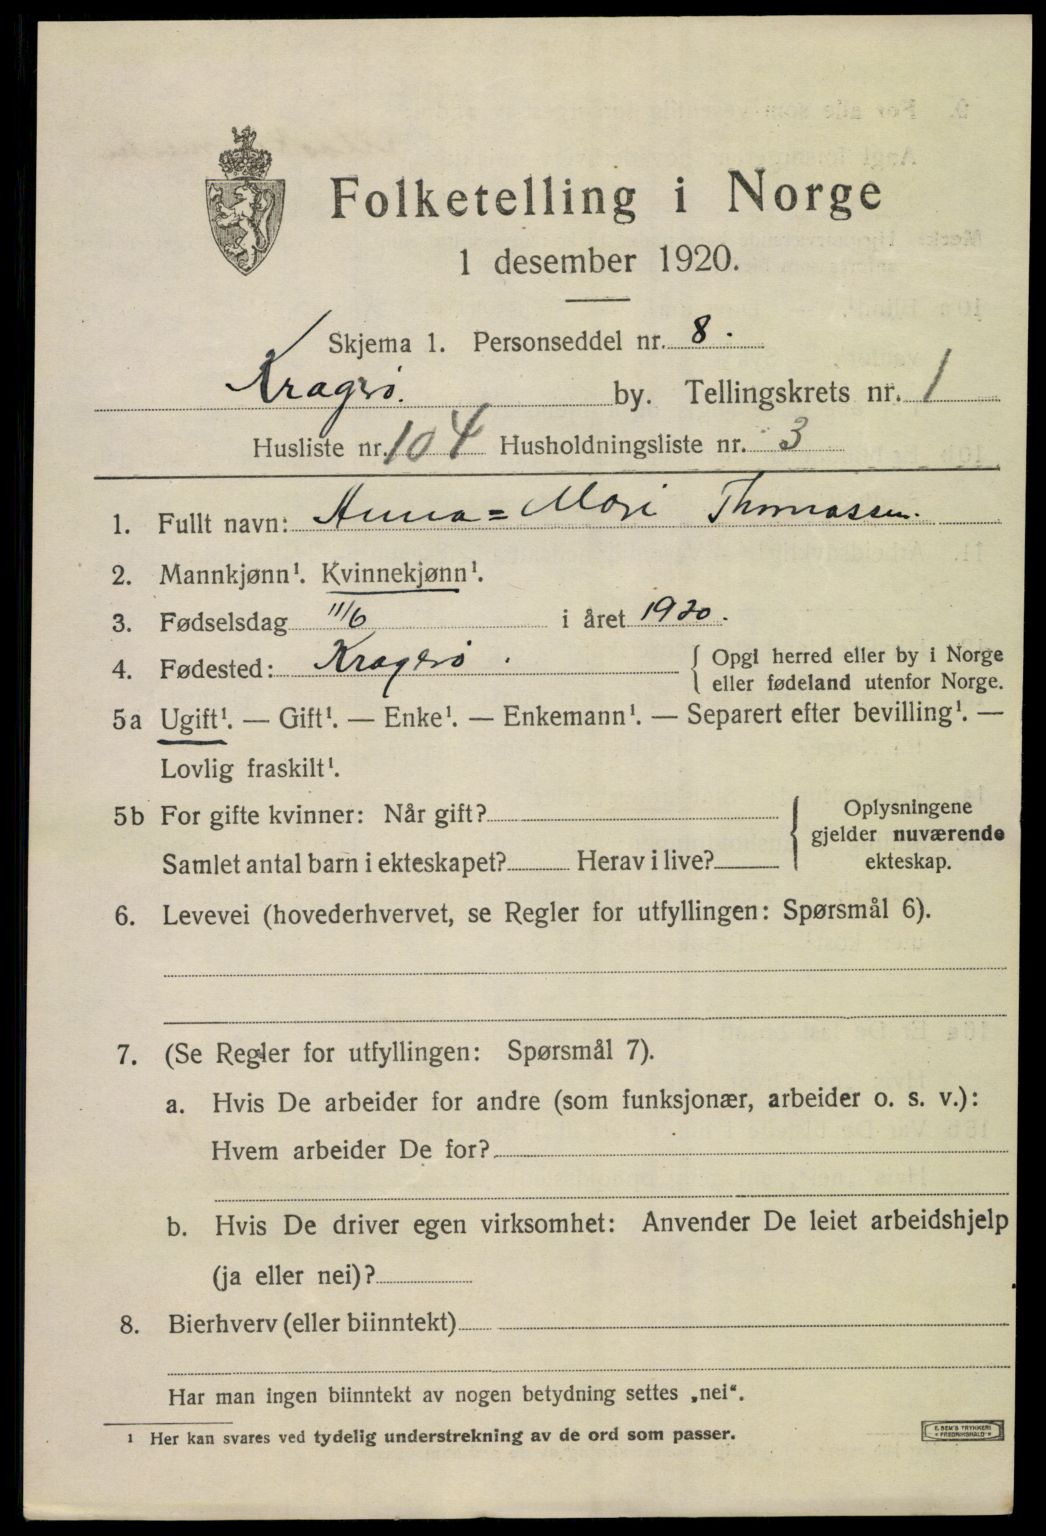 Folketelling i Norge
1 desember 1920.
Skjema 1. Personseddel nr. 8.
Kragerø. by. Tellingskrets nr. 1
Husliste nr. 104 Husholdningsliste nr. 3
1. Fullt navn: Anna=Mari Thomassen.
2. Mannkjønn¹. Kvinnekjønn¹.
3. Fødselsdag 11/6 i året 1920.
4. Fødested: Kragerø. { Opgi herred eller by i Norge
eller fødeland utenfor Norge.
5a Ugift¹. — Gift¹. — Enke¹. — Enkemann¹. — Separert efter bevilling¹. —
Lovlig fraskilt¹.
5b For gifte kvinner: Når gift?
Samlet antal barn i ekteskapet? Herav i live?
Oplysningene
gjelder nuværende
ekteskap.
6. Levevei (hovederhvervet, se Regler for utfyllingen: Spørsmål 6).
7. (Se Regler for utfyllingen: Spørsmål 7).
a. Hvis De arbeider for andre (som funksjonær, arbeider o. s. v.):
Hvem arbeider De for?
b. Hvis De driver egen virksomhet: Anvender De leiet arbeidshjelp
(ja eller nei)?
8. Bierhverv (eller biinntekt)
Har man ingen biinntekt av nogen betydning settes „nei“.
¹ Her kan svares ved tydelig understrekning av de ord som passer.
E. SEM'S TRYKKERI
FREDRIKSHALD